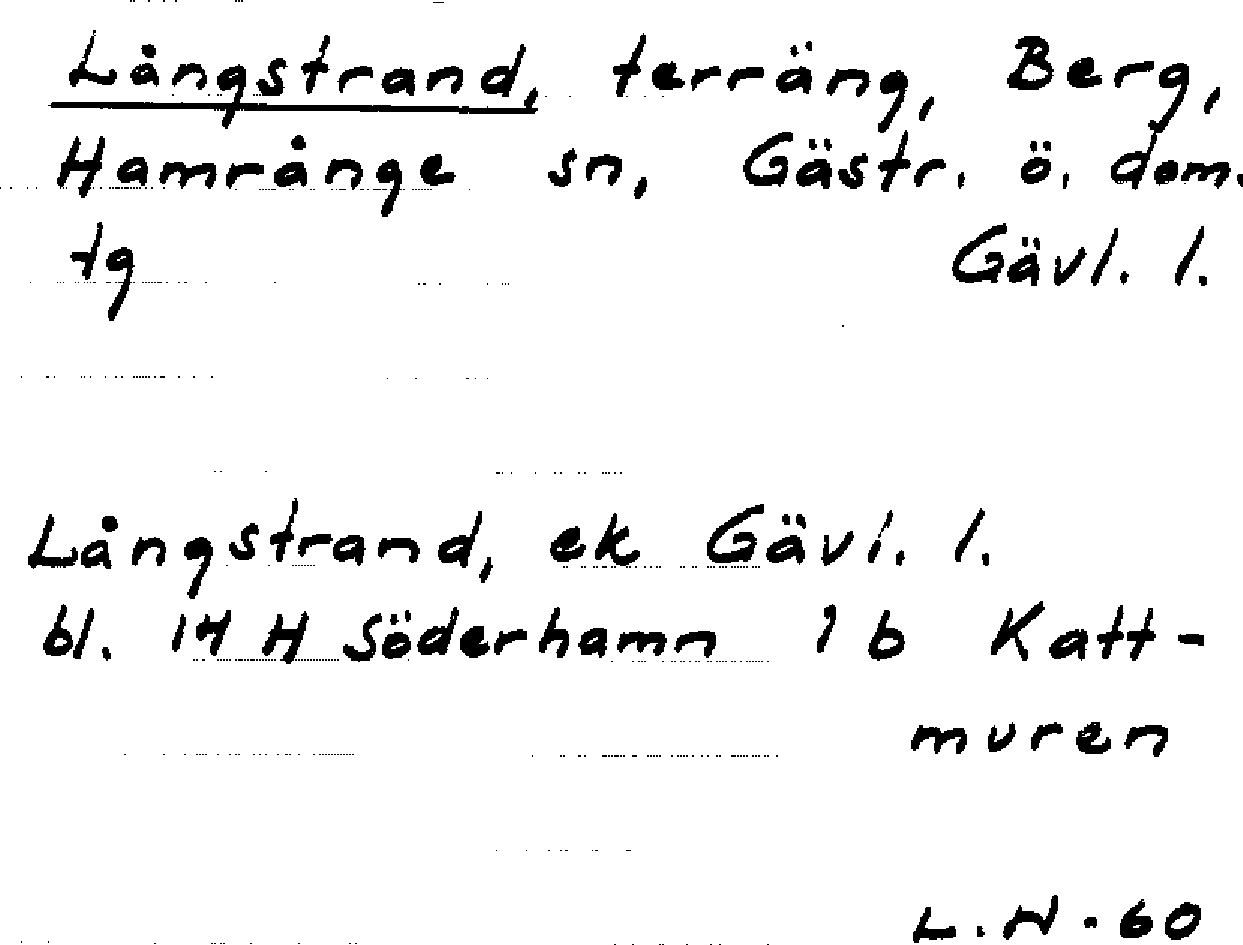 Långstrand, terräng, Berg,
Hamrånge sn, Gästr. ö. dom.
tg Gävl. l.
Långstrand, ek Gävl. l.
bl. 14 H Söderhamn 1 b Katt-
muren
L.N.60